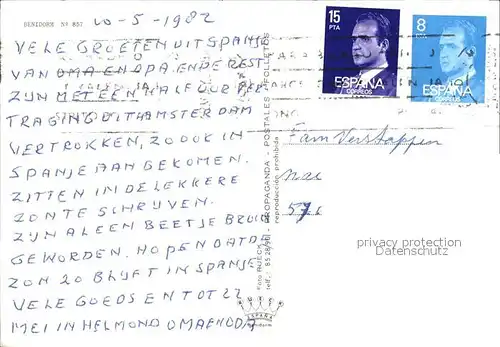 BENIDORM Nº 857
10-5-1982
VELE GROETEN UIT SPANJE
VAN OMA EN OPA. EN DE REST
ZIJN MET EEN HALF UUR VER
TRAGING UIT AMSTERDAM
VERTROKKEN, ZO OOK IN
SPANJE AANGEKOMEN.
ZITTEN IN DE LEKKERE
ZON TE SCHRIJVEN.
ZIJN AL EEN BEETJE BRUIN
GEWORDEN. HOPEN DAT DE
ZON ZO BLIJFT IN SPANJE
VELE GOEDS EN TOT 22
MEI IN HELMOND OMA EN OPA
15
PTA
ESPAÑA
CORREOS
8
PTA
ESPAÑA
CORREOS
Fam Verstappen
PROPAGANDA - POSTALES - FOLLETOS
reproducción prohibida
ESPAÑA
privacy protection
Sammlerdienste